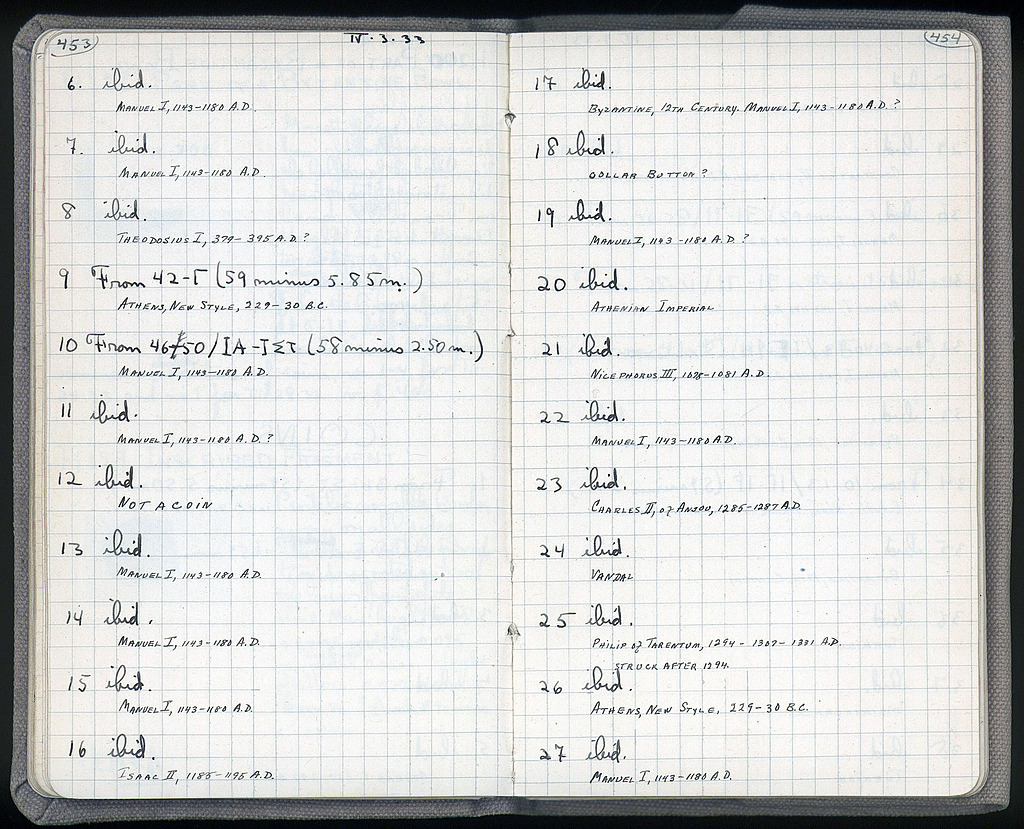 453
IV.3.33
6. ibid.
MANUEL I, 1143-1180 A.D.
7. ibid.
MANUEL I, 1143-1180 A.D.
8 ibid.
THEODOSIUS I, 379-395 A.D.?
9 From 42-Γ (59 minus 5.85m.)
ATHENS, NEW STYLE, 229-30 B.C.
10 From 46-50/ΙΑ-ΙΣΤ (58 minus 2.50m.)
MANUEL I, 1143-1180 A.D.
11 ibid.
MANUEL I, 1143-1180 A.D.?
12 ibid.
NOT A COIN
13 ibid.
MANUEL I, 1143-1180 A.D.
14 ibid.
MANUEL I, 1143-1180 A.D.
15 ibid.
MANUEL I, 1143-1180 A.D.
16 ibid.
ISAAC II, 1185-1195 A.D.
454
17 ibid.
BYZANTINE, 12TH CENTURY. MANUEL I, 1143-1180 A.D.?
18 ibid.
COLLAR BUTTON?
19 ibid.
MANUEL I, 1143-1180 A.D.?
20 ibid.
ATHENIAN IMPERIAL
21 ibid.
NICEPHORUS III, 1078-1081 A.D.
22 ibid.
MANUEL I, 1143-1180 A.D.
23 ibid.
CHARLES II, of ANJOU, 1285-1287 A.D.
24 ibid.
VANDAL
25 ibid.
PHILIP of TARENTUM, 1294-1307-1331 A.D.
STRUCK AFTER 1294.
26 ibid.
ATHENS, NEW STYLE, 229-30 B.C.
27 ibid.
MANUEL I, 1143-1180 A.D.